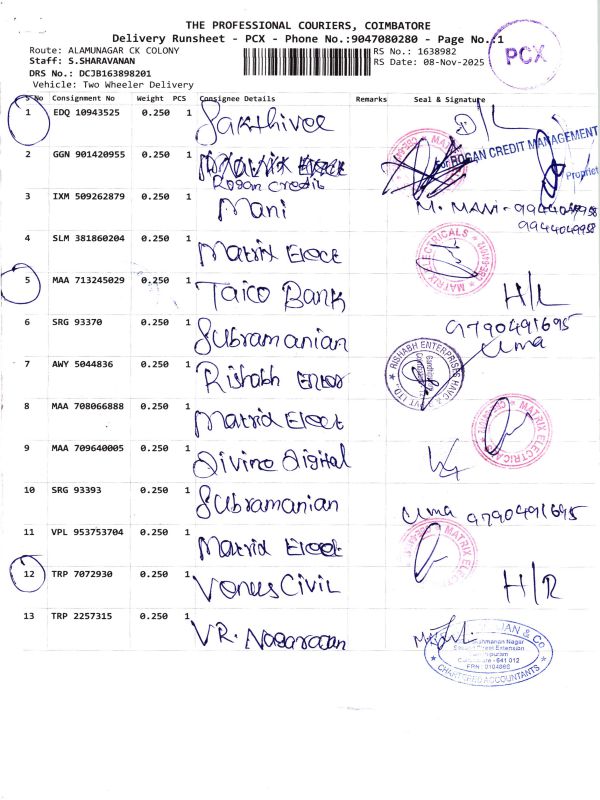 THE PROFESSIONAL COURIERS, COIMBATORE
Delivery Runsheet - PCX - Phone No.:9047080280 - Page No.:1
Route: ALAMUNAGAR CK COLONY
RS No.: 1638982
Staff: S.SHARAVANAN
RS Date: 08-Nov-2025
DRS No.: DCJB163898201
Vehicle: Two Wheeler Delivery
PCX
S No Consignment No Weight PCS Consignee Details Remarks Seal & Signature
1 EDQ 10943525 0.250 1 Sakthivel
2 GGN 901420955 0.250 1 Rogan Credits
For ROGAN CREDIT MANAGEMENT
3 IXM 509262879 0.250 1 Mani M. MANI - 9944049958
9944049958
4 SLM 381860204 0.250 1 Matrix Elect
MATRIX ELECTRICALS
5 MAA 713245029 0.250 1 Taico Bank H/L
6 SRG 93370 0.250 1 Subramanian 9790491695
Uma
7 AWY 5044836 0.250 1 Rishabh Enter
RISHABH ENTERPRISES
8 MAA 708066888 0.250 1 Matrix Elect
MATRIX ELECTRICALS
9 MAA 709640005 0.250 1 Divine Digital
10 SRG 93393 0.250 1 Subramanian Uma 9790491695
11 VPL 953753704 0.250 1 Matrix Elect
MATRIX
12 TRP 7072930 0.250 1 Venus Civil H/R
13 TRP 2257315 0.250 1 VR. Nagarajan
& Co
Street Extension
Coimbatore - 641 012
CHARTERED ACCOUNTANTS